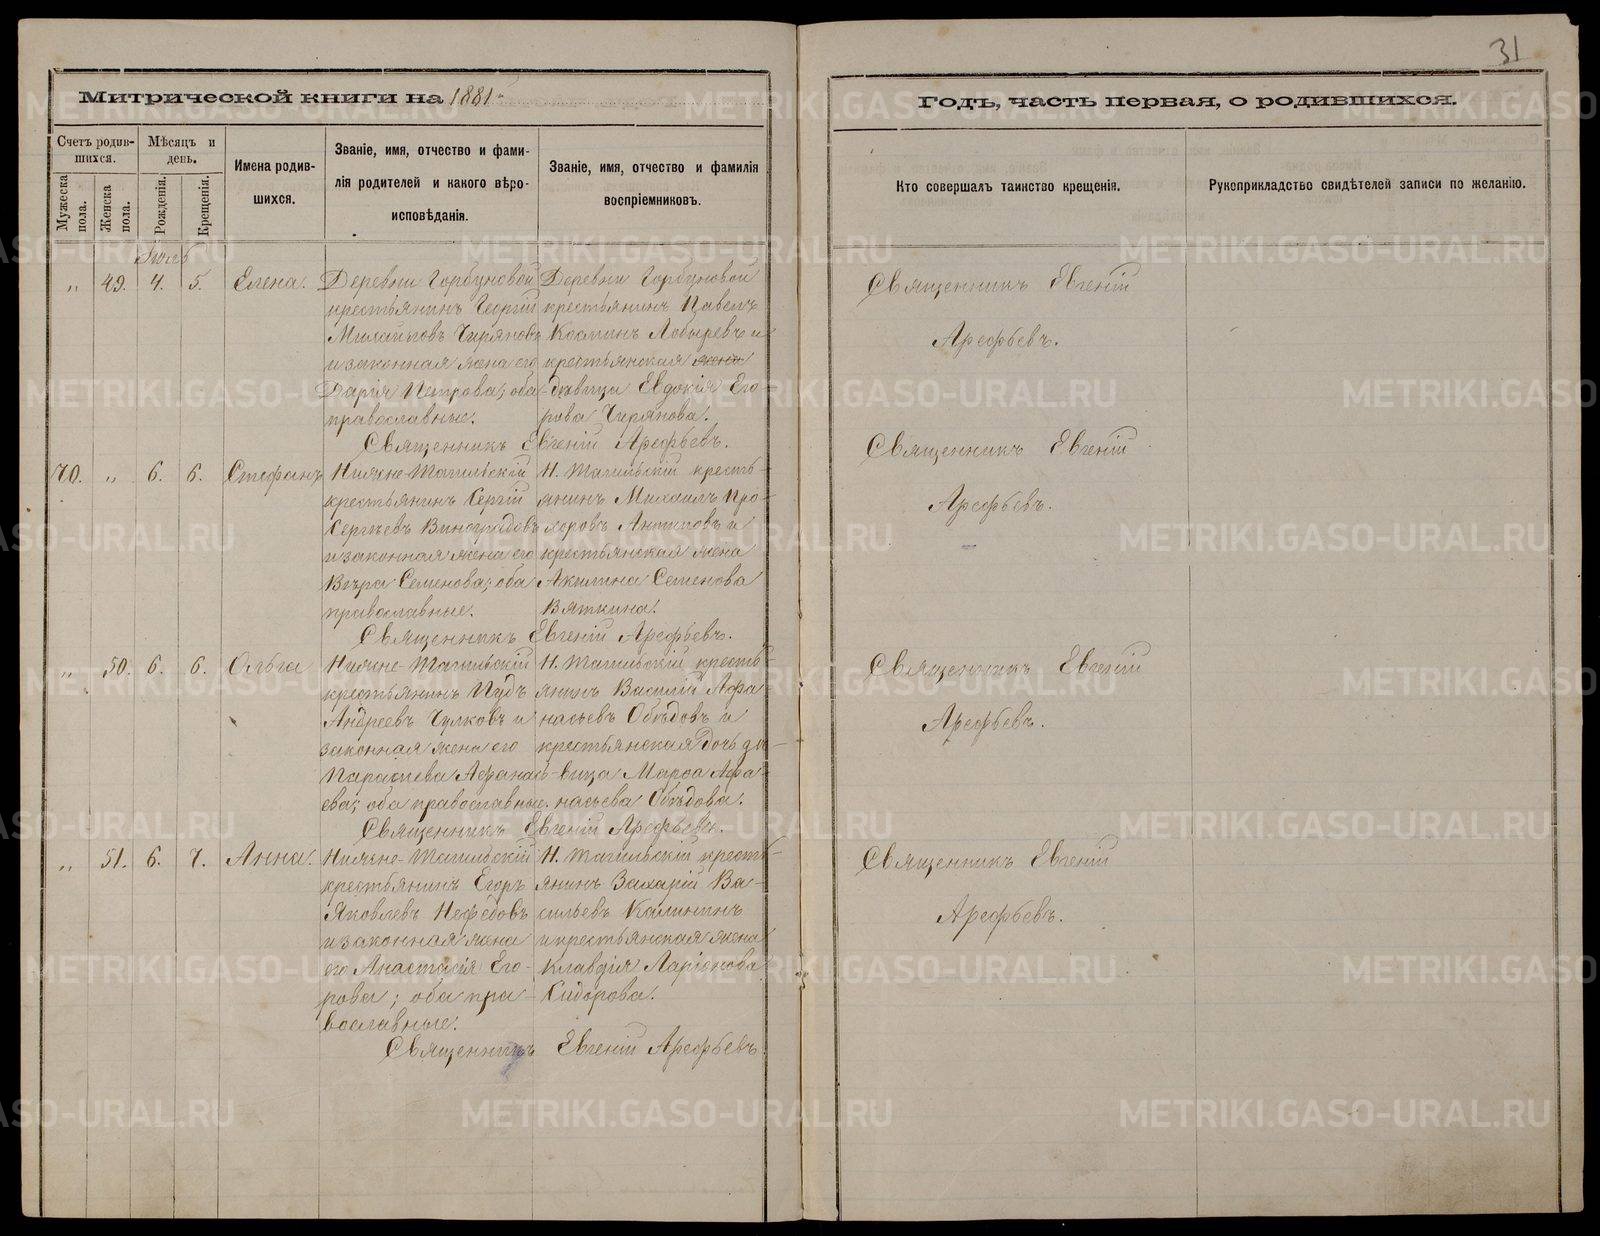 31
Митрической книги на 1881й
Годъ, часть первая, о родившихся.
Счетъ родив-
шихся.
Мужеска пола.
Женска пола.
Мѣсяцъ и
день.
Рожденія.
Крещенія.
Имена родив-
шихся.
Званіе, имя, отчество и фами-
лія родителей и какого вѣро-
исповѣданія.
Званіе, имя, отчество и фамилія
воспріемниковъ.
Кто совершалъ таинство крещенія.
Рукоприкладство свидѣтелей записи по желанію.
Іюль
" 49. 4. 5. Елена.
Деревни Горбуновой
крестьянинъ Георгій
Михайловъ Чирянов
и законная жена его
Дарія Петрова; оба
православные.
Деревни Горбуновой
крестьянинъ Павелъ
Косминъ Лобыревъ и
крестьянская жена
дѣвица Евдокія Его
рова Чирянова.
Священникъ Евгеній Арефьевъ.
Священникъ Евгеній
Арефьевъ.
70. " 6. 6. Стефанъ
Нижне-Тагильскій
крестьянинъ Сергій
Сергѣевъ Виноградовъ
и законная жена его
Вѣра Семенова; оба
православные.
Н. Тагильскій кресть-
янинъ Михаилъ Про-
хоровъ Антиповъ и
крестьянская жена
Акилина Семенова
Вяткина.
Священникъ Евгеній Арефьевъ.
Священникъ Евгеній
Арефьевъ.
" 50. 6. 6. Ольга
Нижне-Тагильскій
крестьянинъ Пудъ
Андреевъ Чулковъ и
законная жена его
Параскева Афанась-
ева; оба православные.
Н. Тагильскій кресть-
янинъ Василій Афа
насьевъ Обѣдовъ и
крестьянская дочь дѣ-
вица Марѳа Афа-
насьева Обѣдова.
Священникъ Евгеній Арефьевъ.
Священникъ Евгеній
Арефьевъ.
" 51. 6. 7. Анна.
Нижне-Тагильскій
крестьянинъ Егоръ
Яковлевъ Нефедовъ
и законная жена
его Анастасія Его-
рова; оба пра-
вославные.
Н. Тагильскій кресть-
янинъ Захарій Ва-
сильевъ Калининъ
и крестьянская жена
Клавдія Ларіонова
Сидорова.
Священникъ Евгеній Арефьевъ.
Священникъ Евгеній
Арефьевъ.
METRIKI.GASO-URAL.RU